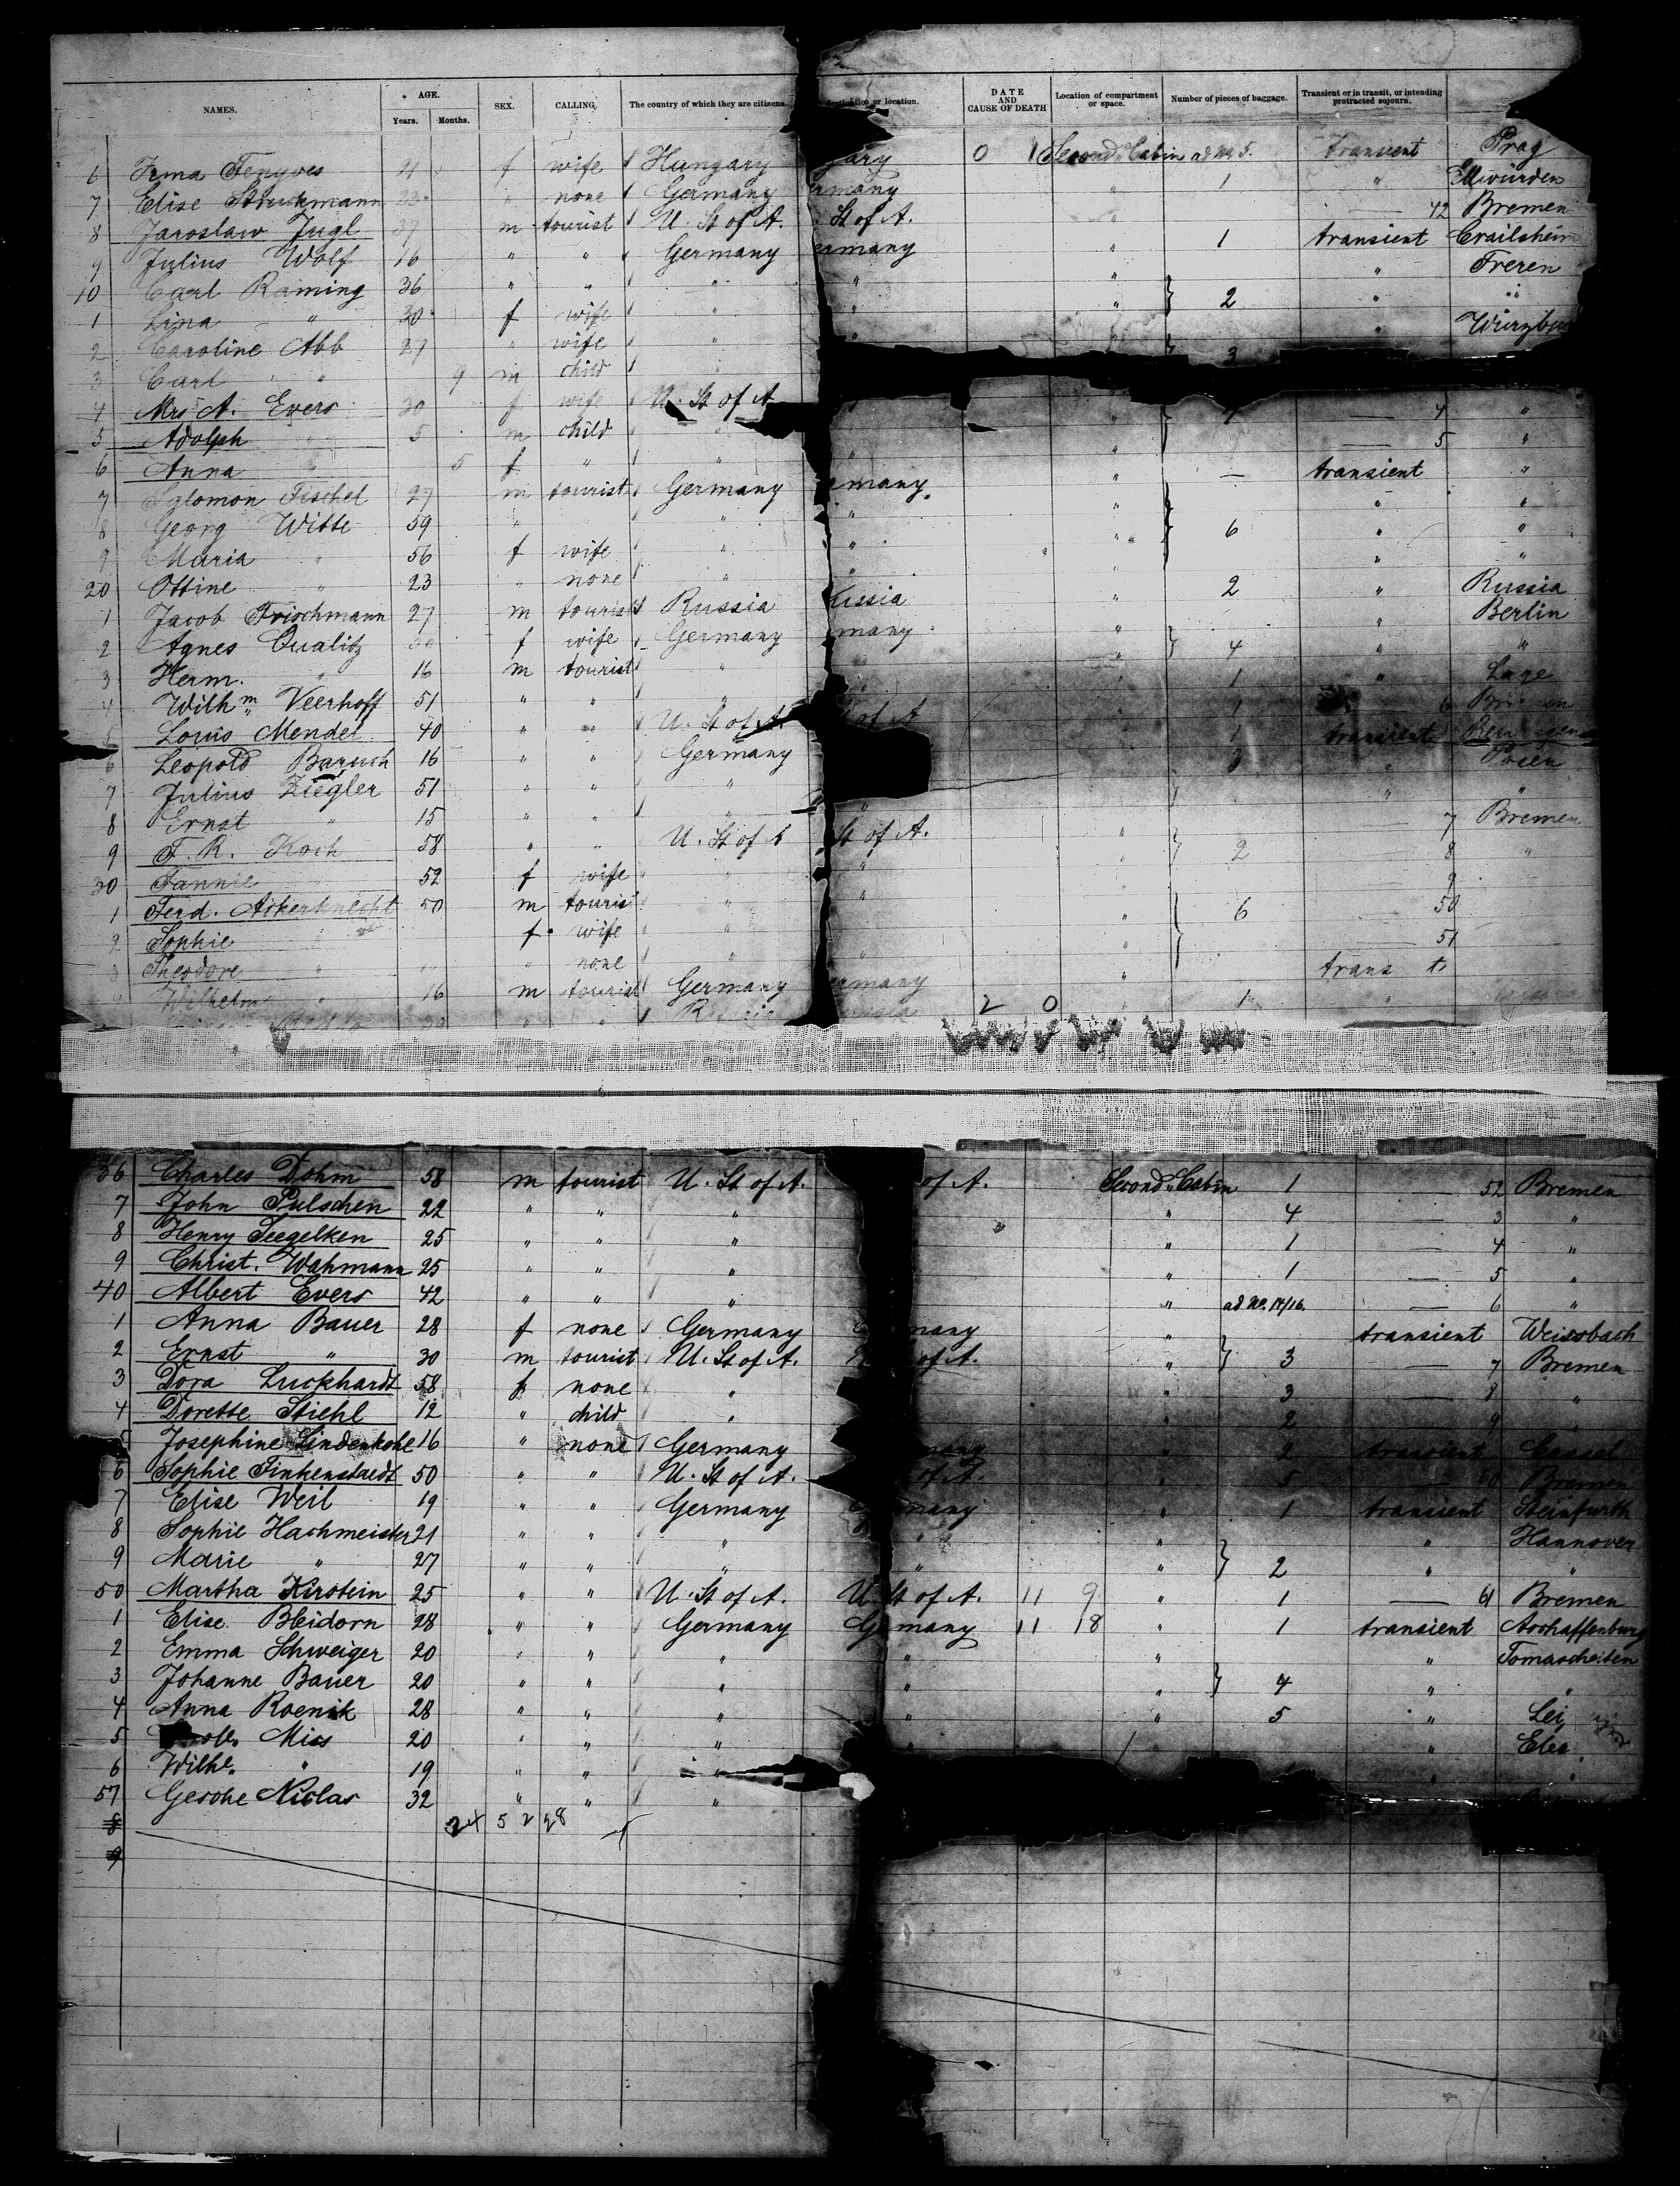 NAMES. AGE. Years. Months. SEX. CALLING. The country of which they are citizens. or location. DATE AND CAUSE OF DEATH Location of compartment or space. Number of pieces of baggage. Transient or in transit, or intending protracted sojourn.
6 Irma Fenyves 21 f wife Hungary gary 0 1 Second Cabin ad No 5. transient Prag
7 Elise Struckmann 22 " none Germany ermany " 1 " Ellwürden
8 Jaroslaw Jugl 37 m tourist U. St of A. St of A. " — 42 Bremen
9 Julius Wolf 16 " " Germany ermany " 1 transient Crailsheim
10 Carl Raming 36 " " " " " " Freren
1 Lina " 30 f wife " " " } 2 " "
2 Caroline Abb 27 " wife " " " Würzbu
3 Carl " 9 m child " } 3
4 Mrs A. Evers 30 f wife U. St of A — 4 "
5 Adolph " 5 m child " " " — 5 "
6 Anna " 5 f " " " " — transient "
7 Salomon Fischel 27 m tourist Germany many " " "
8 Georg Witte 59 " " " " " } 6 " "
9 Maria " 56 f wife " " " " "
20 Ottine " 23 " none " " " 2 " Russia
1 Jacob Frischmann 27 m tourist Russia ussia " " Berlin
2 Agnes Qualitz f wife Germany many " } 4 " "
3 Herm. " 16 m tourist " " " 1 " Lage
4 Wilhm Veerhoff 51 " " " " 1 6
5 Louis Mendel 40 " " U. St of A. of A " 1 transient
6 Leopold Baruch 16 " " Germany 3 " Posen
7 Julius Ziegler 51 " " " " "
8 Ernst " 15 " " " " 7 Bremen
9 F. R. Koch 58 " " U. St of A St of A. " } 2 8 "
30 Fannie 52 f wife " " " 9
1 Ferd. Ackerknecht 50 m tourist " " " } 6 50
2 Sophie " f wife " " — 51
3 Theodore " " none " " " trans t.
Wilhelm " 16 m tourist Germany rmany 2 0 " 1 "
36 Charles Dohm 58 m tourist U. St of A. of A. Second Cabin 1 — 52 Bremen
7 John Pulschen 22 " " " " 4 — 3 "
8 Henry Seegelken 25 " " " " 1 — 4 "
9 Christ. Wahmann 25 " " " " 1 — 5 "
40 Albert Evers 42 " " " " ad No. 14/16. — 6 "
1 Anna Bauer 28 f none Germany many " transient Weissbach
2 Ernst " 30 m tourist U. St of A. of A. " } 3 — 7 Bremen
3 Dora Luckhardt 58 f none " " 3 — 8 "
4 Dorette Stiehl 12 " child " " 2 — 9 "
5 Josephine Lindenkohl 16 " none Germany many " 2 transient Cassel
6 Sophie Finkenstaedt 50 " " U. St of A. of A. " 5 60 Bremen
7 Elise Weil 19 " " Germany many " 1 transient Steinfurth
8 Sophie Hachmeister 21 " " " " " " Hannover
9 Marie " 27 " " " " " } 2 " "
50 Martha Kirstein 25 " " U. St of A. U. St of A. 11 9 " 1 — 61 Bremen
1 Elise Bleidorn 28 " " Germany Germany 11 18 " 1 transient Aschaffenburg
2 Emma Schweiger 20 " " " " " " Tomascheiten
3 Johanne Bauer 20 " " " " " } 4 " "
4 Anna Roenik 28 " " " " " 5 " Lei
5 Miss 20 " " " " " "
6 Wilhe. " 19 " " " " "
57 Gesche Niclas 32 " " "
8 24 5 2 28
9